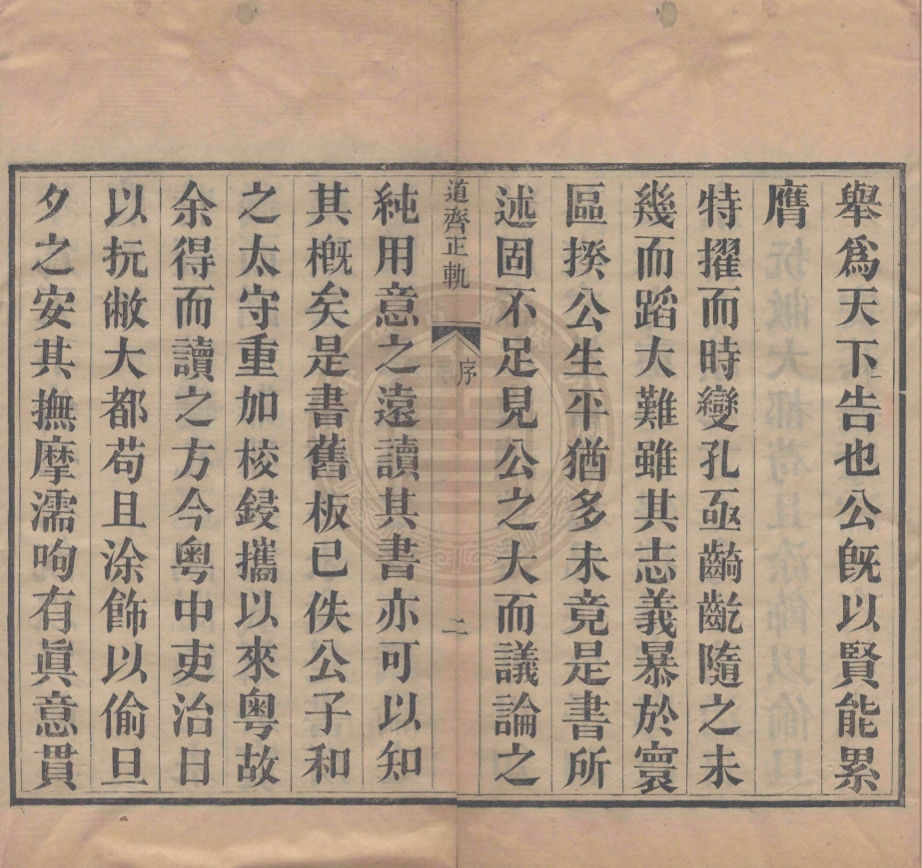 舉爲天下告也公旣以賢能累
膺
特擢而時變孔亟齮齕隨之未
幾而蹈大難雖其志義暴於寰
區揆公生平猶多未竟是書所
述固不足見公之大而議論之
道齊正軌 序 二
純用意之遠讀其書亦可以知
其槪矣是書舊板已佚公子和
之太守重加校鋟攜以來粤故
余得而讀之方今粤中吏治日
以抏敝大都苟且涂飾以偷旦
夕之安其撫摩濡呴有眞意貫